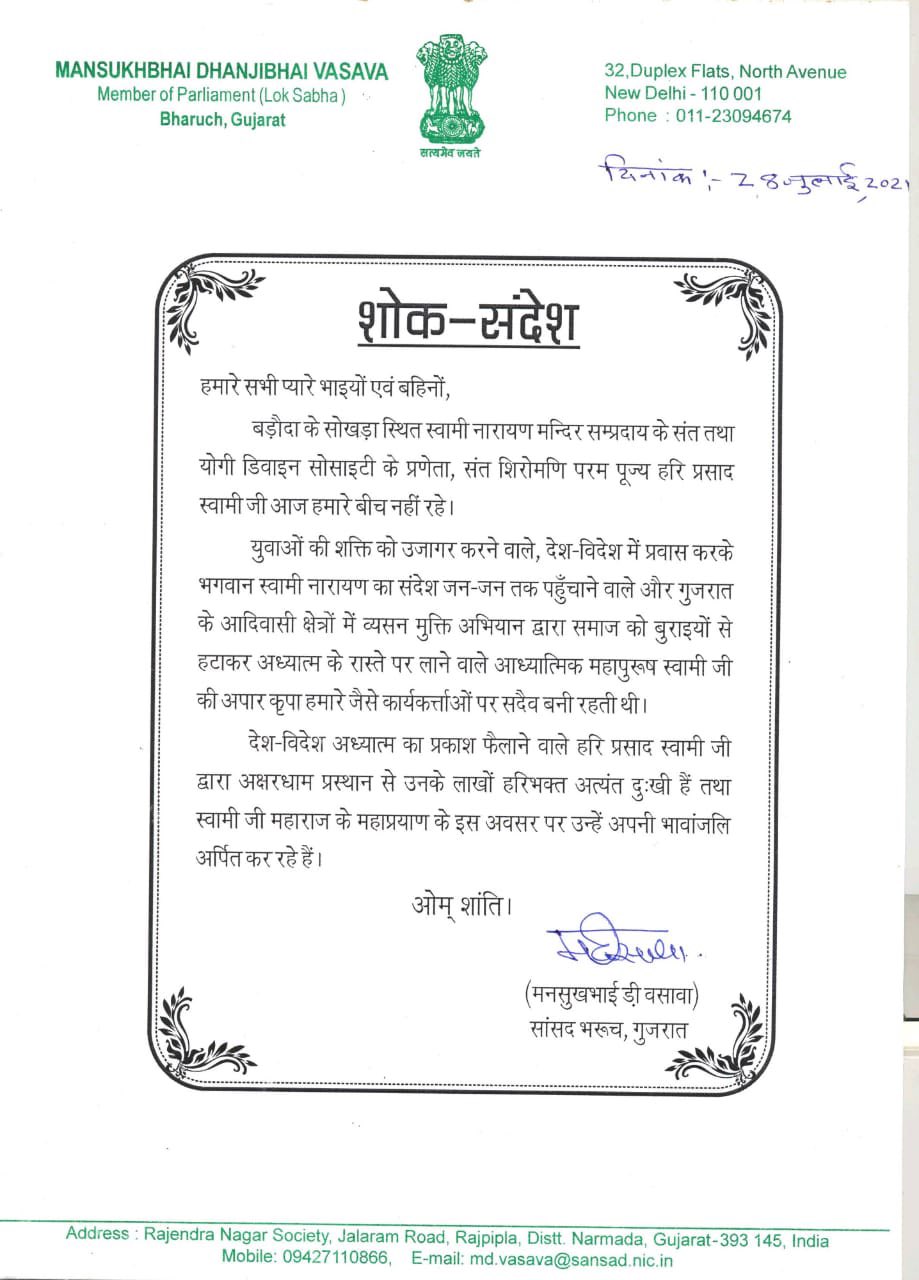 MANSUKHBHAI DHANJIBHAI VASAVA
Member of Parliament (Lok Sabha)
Bharuch, Gujarat
सत्यमेव जयते
32,Duplex Flats, North Avenue
New Delhi - 110 001
Phone : 011-23094674
दिनांक :- 28 जुलाई, 2021
शोक-संदेश
हमारे सभी प्यारे भाइयों एवं बहिनों,
बड़ौदा के सोखड़ा स्थित स्वामी नारायण मन्दिर सम्प्रदाय के संत तथा
योगी डिवाइन सोसाइटी के प्रणेता, संत शिरोमणि परम पूज्य हरि प्रसाद
स्वामी जी आज हमारे बीच नहीं रहे।
युवाओं की शक्ति को उजागर करने वाले, देश-विदेश में प्रवास करके
भगवान स्वामी नारायण का संदेश जन-जन तक पहुँचाने वाले और गुजरात
के आदिवासी क्षेत्रों में व्यसन मुक्ति अभियान द्वारा समाज को बुराइयों से
हटाकर अध्यात्म के रास्ते पर लाने वाले आध्यात्मिक महापुरूष स्वामी जी
की अपार कृपा हमारे जैसे कार्यकर्त्ताओं पर सदैव बनी रहती थी।
देश-विदेश अध्यात्म का प्रकाश फैलाने वाले हरि प्रसाद स्वामी जी
द्वारा अक्षरधाम प्रस्थान से उनके लाखों हरिभक्त अत्यंत दुःखी हैं तथा
स्वामी जी महाराज के महाप्रयाण के इस अवसर पर उन्हें अपनी भावांजलि
अर्पित कर रहे हैं।
ओम् शांति।
(मनसुखभाई डी़ वसावा)
सांसद भरूच, गुजरात
Address : Rajendra Nagar Society, Jalaram Road, Rajpipla, Distt. Narmada, Gujarat-393 145, India
Mobile: 09427110866, E-mail: md.vasava@sansad.nic.in